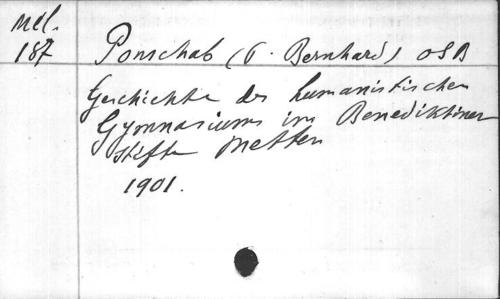 Mel.
187 Ponschab (P. Bernhard) OSB
Geschichte des humanistischen
Gymnasiums im Benediktiner
stifte Metten
1901.